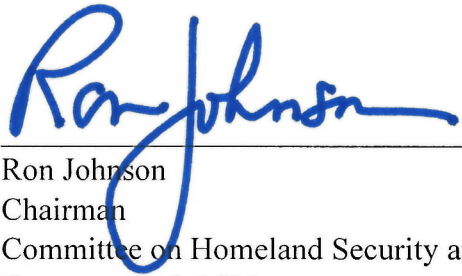 Ron Johnson
Ron Johnson
Chairman
Committee on Homeland Security a